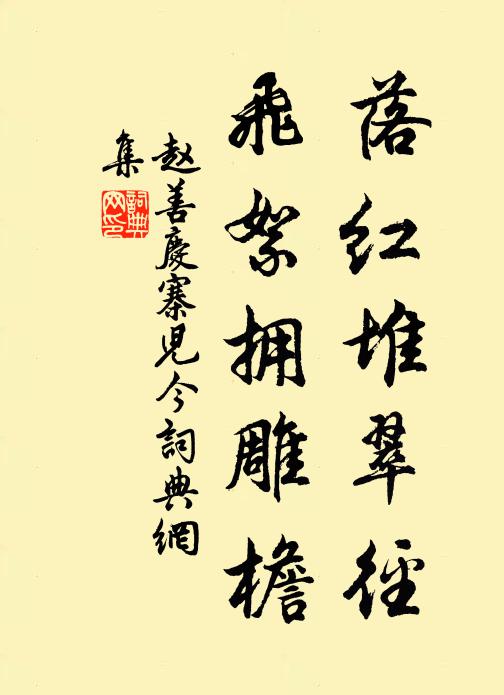 落红堆翠径
飛絮拥雕檐
赵善慶寨児今詞典網
集
詞典
网印